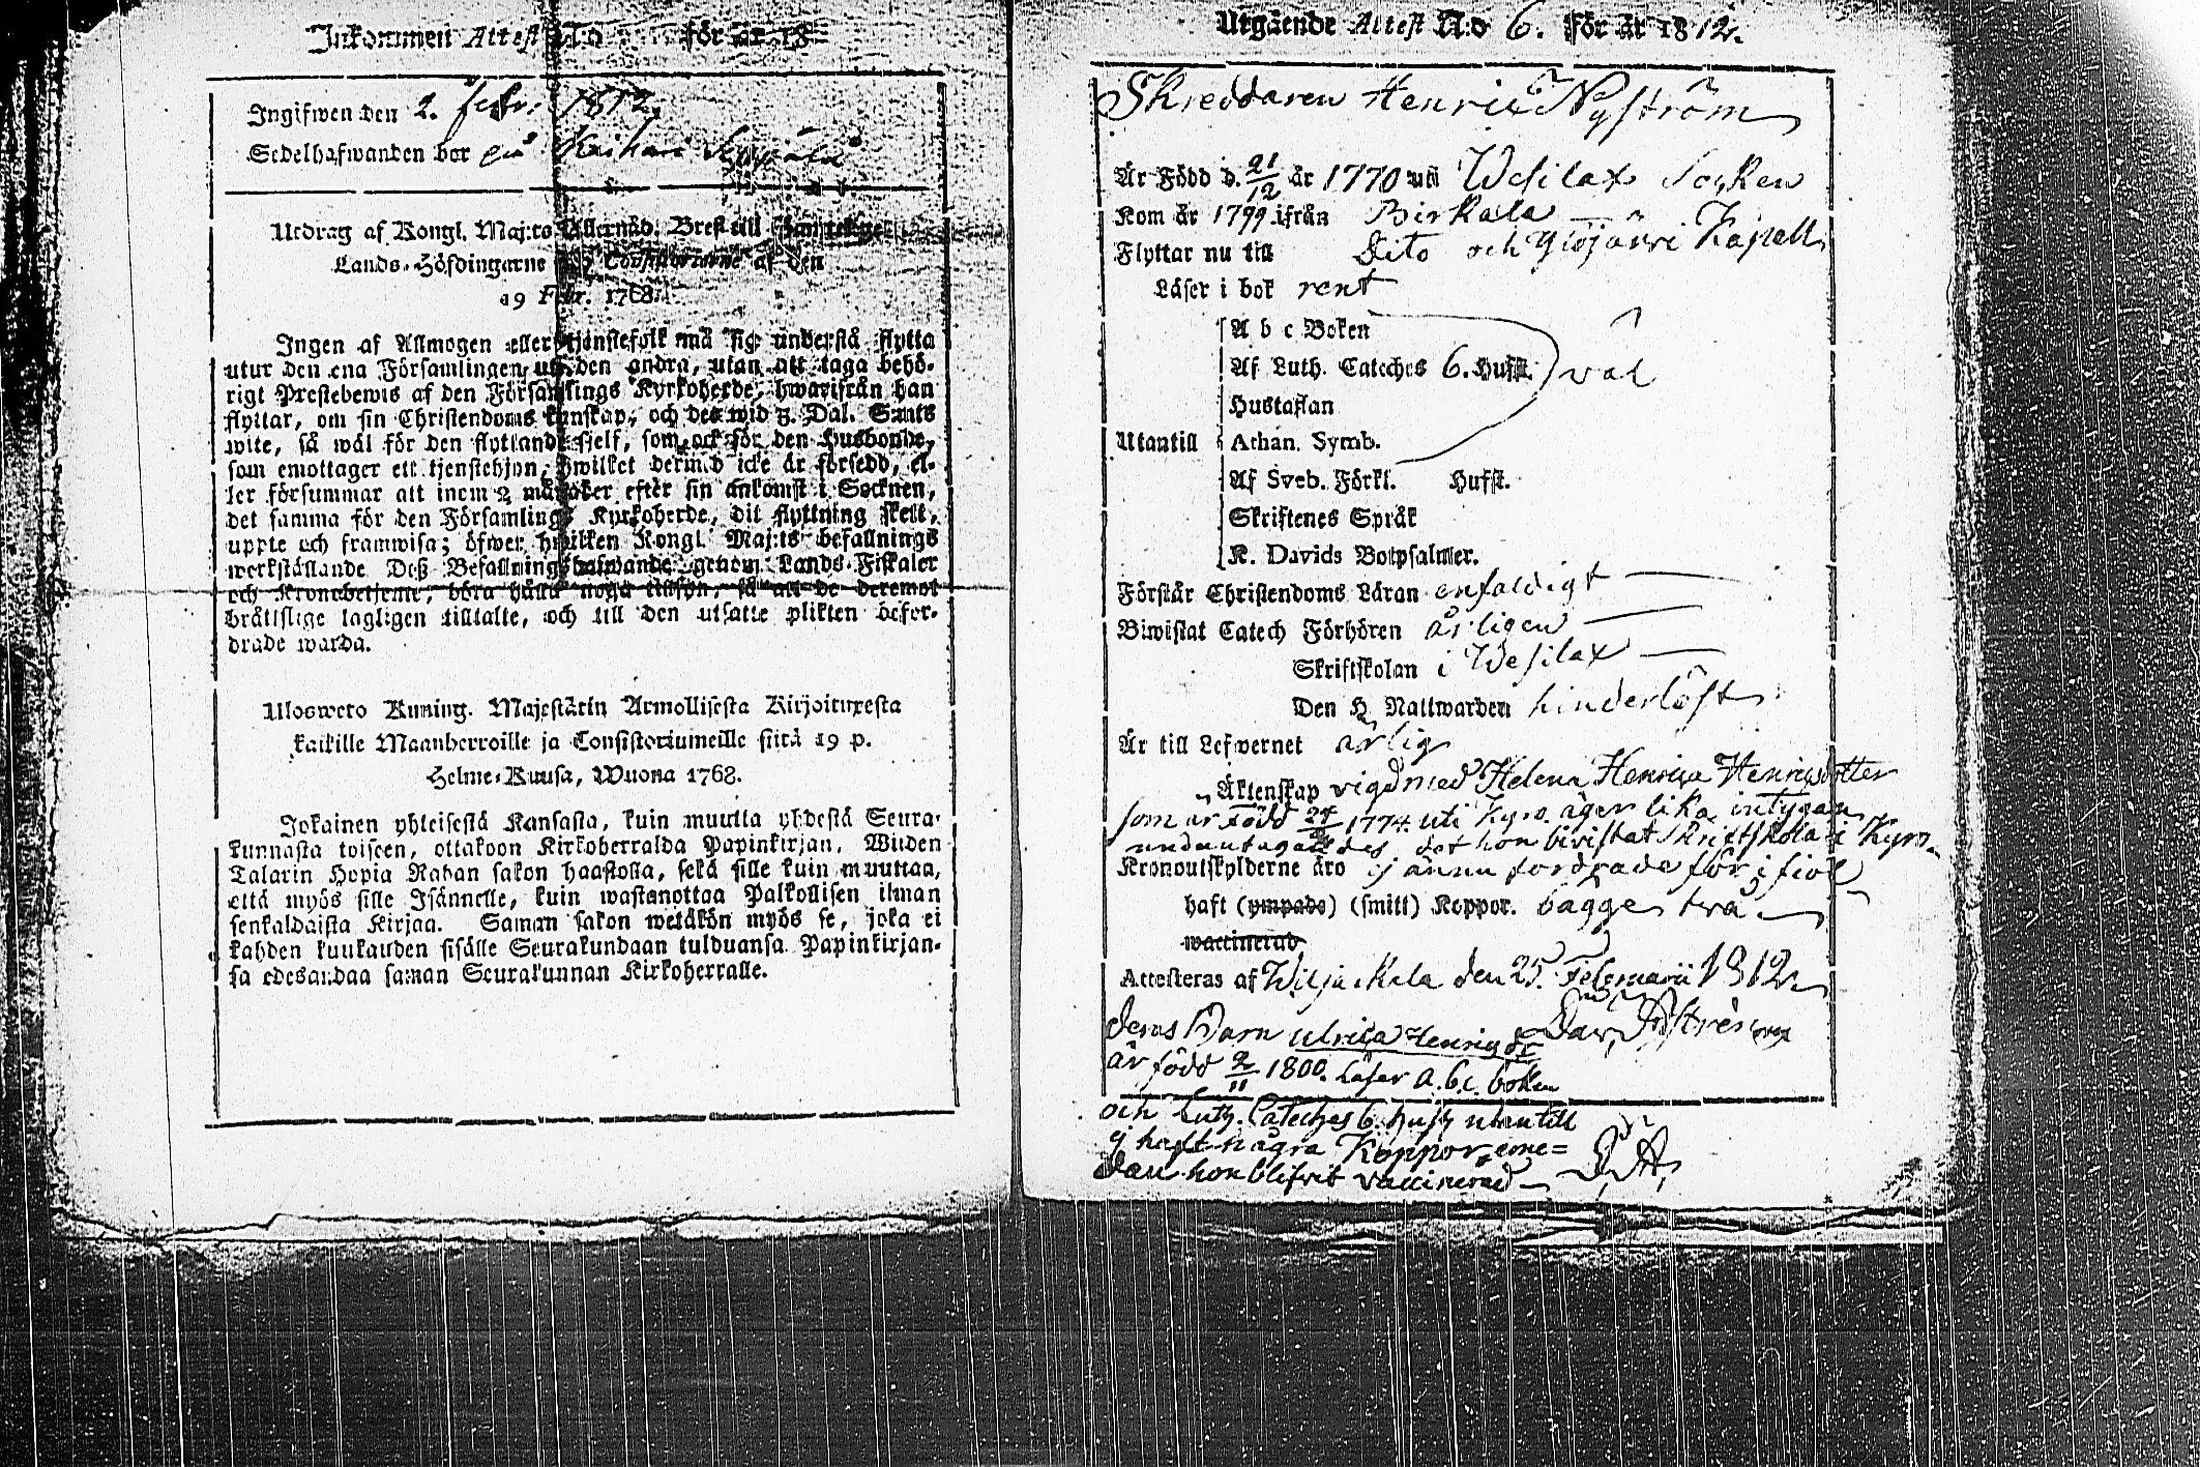 Inkommen Attest N:o för år 18
Ingifwen den 2. febr: 1812
Sedelhafwanden bor på
Utdrag af Kongl. Maj:ts Allernåd. Bref till samtelige
Lands-Höfdingarne och Consistorierne af den
19 Febr. 1768.
Ingen af Allmogen eller tjenstefolk må sig understå flytta
utur den ena Församlingen uti den andra, utan att taga behö-
rigt Prestebewis af den Församlings Kyrkoherde, hwarifrån han
flyttar, om sin Christendoms kunskap, och det wid 3. Dal. S:mts
wite, så wäl för den flyttande sjelf, som ock för den Husbonde,
som emottager ett tjenstehjon, hwilket dermed icke är försedd, el-
ler försummar att inom 2 månader efter sin ankomst i Socknen,
det samma för den Församlings Kyrkoherde, dit flyttning skett,
uppte och framwisa; öfwer hwilken Kongl. Maj:ts befallnings
werkställande Deß Befallningshafwande genom Lands-Fiskaler
och Kronobetjente, böra hålla noga tillsyn, så att de deremot
brättslige lagligen tilltalte, och till den utsatte plikten befor-
drade warda.
Ulosweto Kuning. Majestätin Armollisesta Kirjoituxesta
kaikille Maanherroille ja Consistoriumeille siitä 19 p.
Helme-Kuusa, Wuona 1768.
Jokainen yhteisestä Kansasta, kuin muutta yhdestä Seura-
kunnasta toiseen, ottakoon Kirkoherralda Papinkirjan, Wiiden
Talarin Hopia Rahan sakon haastolla, sekä sille kuin muuttaa,
että myös sille Isännelle, kuin wastanottaa Palkollisen ilman
senkaldaista Kirjaa. Saman sakon wetäkön myös se, joka ei
kahden kuukauden sisälle Seurakundaan tulduansa Papinkirjan-
sa edesandaa saman Seurakunnan Kirkoherralle.
Utgående Attest N:o 6. för år 1812.
Skreddaren Henric Nyström
Är Född d. 21/12 år 1770 uti Wesilax Socken
Kom år 1799 ifrån Birkala
Flyttar nu till Dito och Ylöjärwi Kapell
Läser i bok rent
A b c Boken
Af Luth. Cateches 6. Hufst. väl
Hustaflan
Utantill Athan. Symb.
Af Sveb. Förkl. Hufst.
Skriftenes Språk
K. Davids Botpsalmer.
Förstår Christendoms Läran enfaldigt
Biwistat Catech Förhören årligen
Skriftskolan i Wesilax
Den H. Nattwarden hinderlöst
Är till Lefwernet ärlig
Äktenskap vigd med Helena Henrica Henricsdotter
som är Född 24 1774. uti Kyro. äger lika intygan
undantagandes det hon bivistat Skriftskola i Kyro
Kronoutskylderne äro ej ännu fordrade för i fiol
haft (ympade) (smitt) Koppor. bägge två
waccinerad
Attesteras af Wiljakkala den 25. Februarii 1812
deras Barn Ulrica Henrics dr
är född 2/11 1800. Läser a.b.c. boken
och Luth. Cateches 6. hufst utantill
ej haft några Koppor, eme=
dan hon blifvit vaccinerad